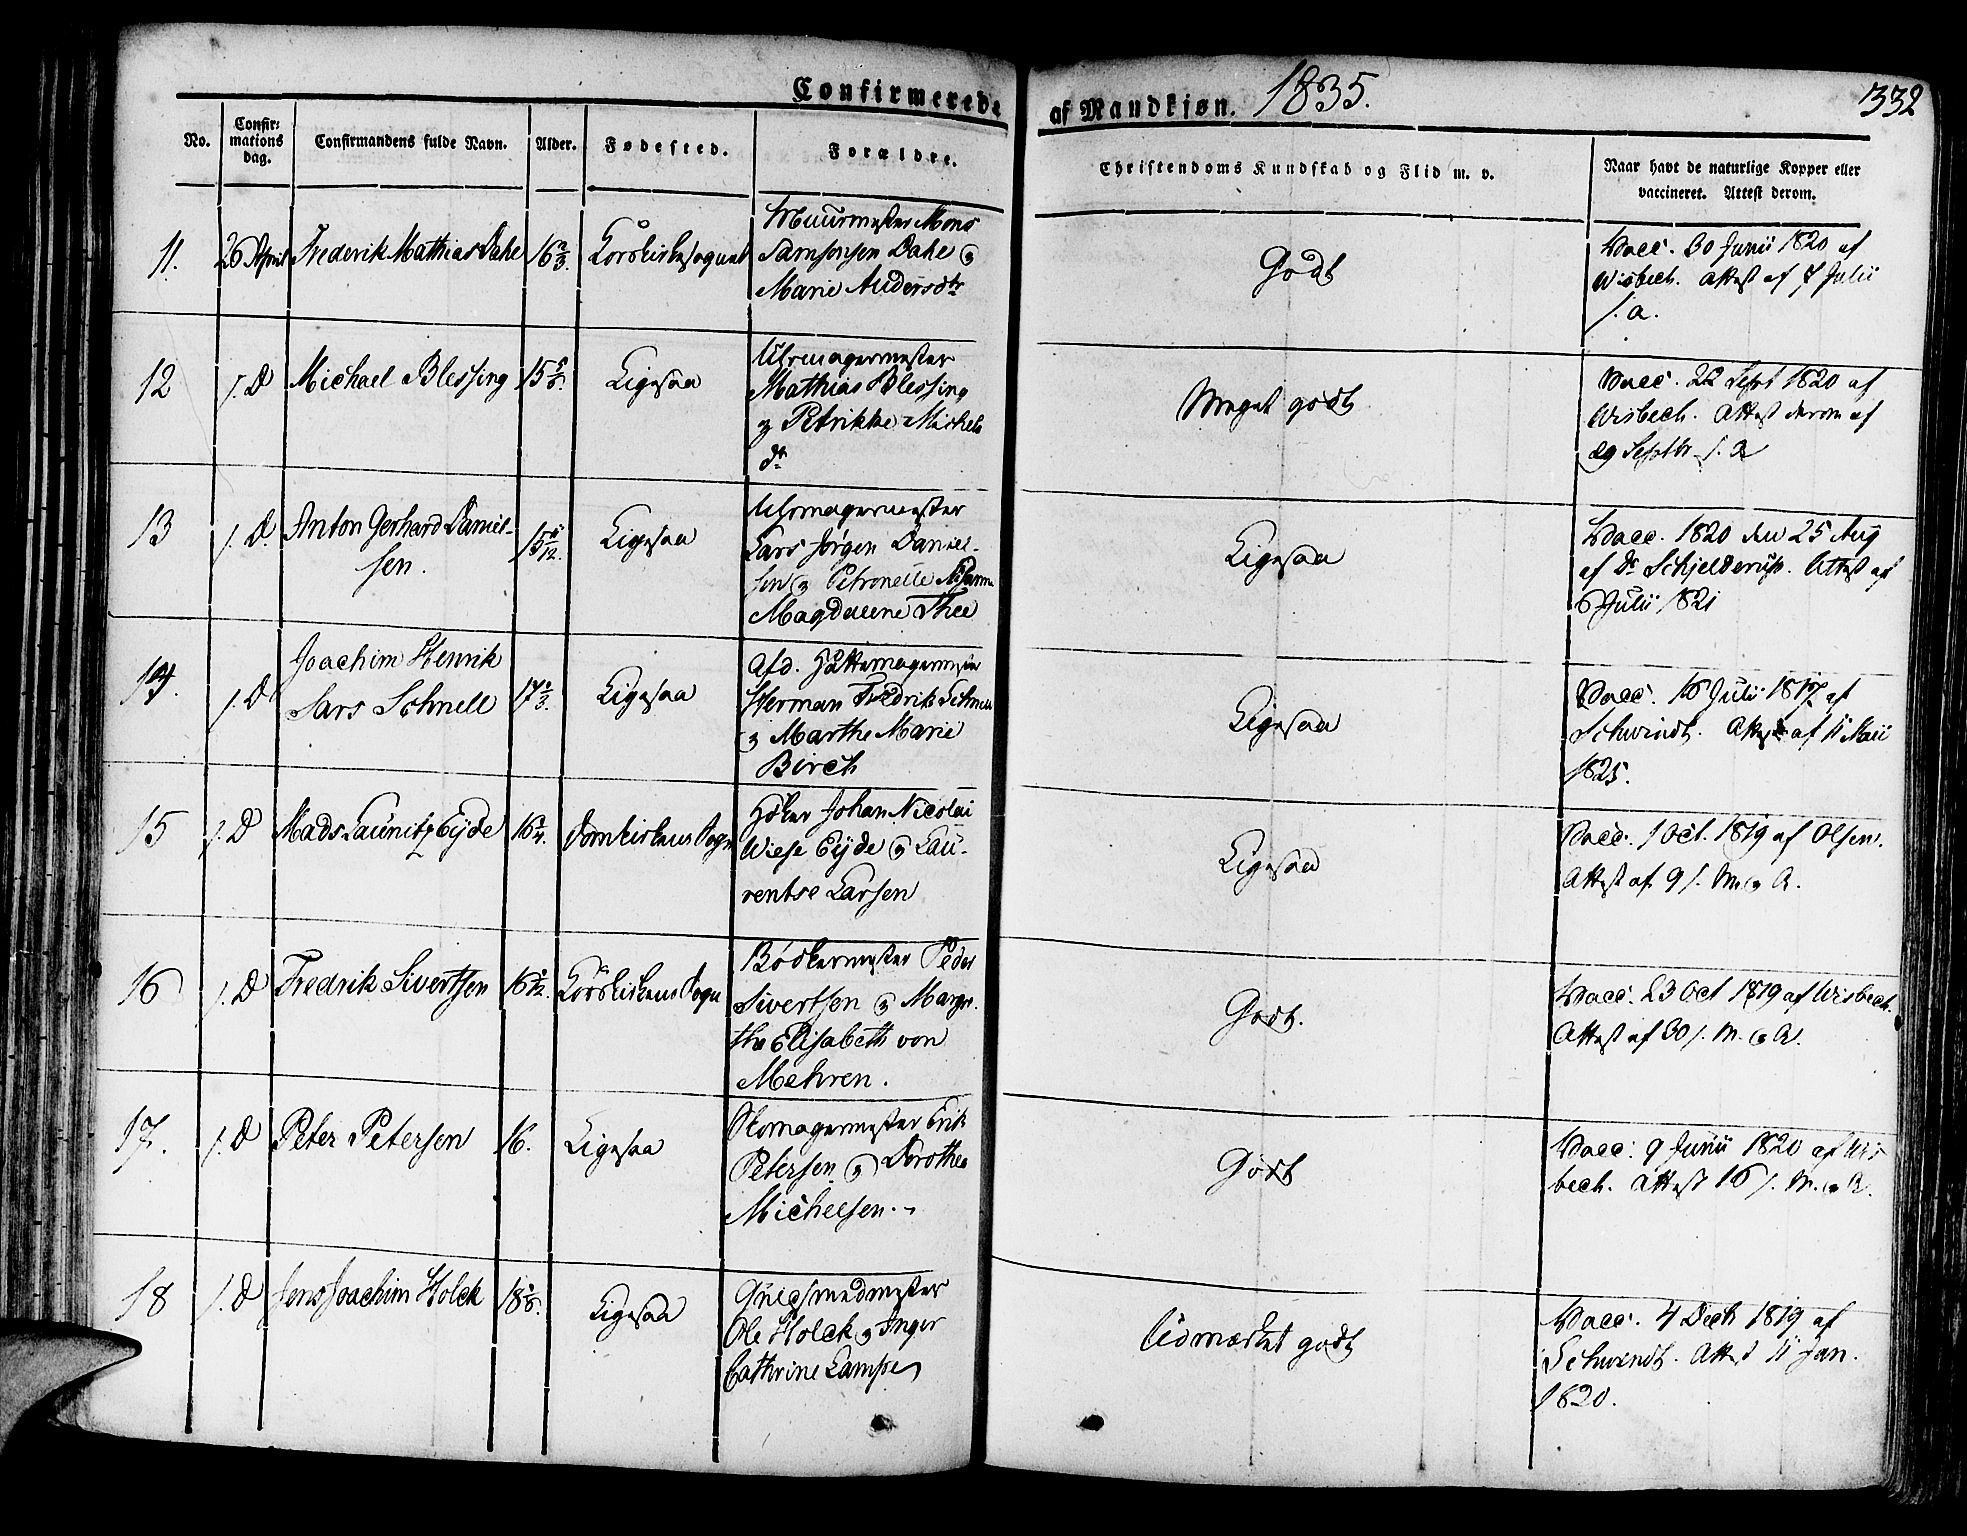 Confirmerede af Mandkjøn. 1835. 332
No. Confir: mations dag. Confirmandens fulde Navn. Alder. Fødested. Forældre. Christendoms Kundskab og Flid m. v. Naar havt de naturlige Kopper eller vaccineret. Attest derom.
11. 26 April Frederik Mathias Dahe 16 2/3. Korskirkesognet
Muurmester Mons
Samsonsen Dahe og
Marie Andersdtr
Godt
Vacc. 30 Junii 1820 af
Wisbech. Attest af 7 Julii
s. a.
12 s. D Michael Blessing 15 Ligesaa
Uhrmagermester
Mathias Blessing
og Petrikke Michels
dtr
Meget godt
Vacc. 22 Sept 1820 af
Wisbech. Attest derom af
29 Septbr s. a
13 s. D. Anton Gerhard Daniel-
sen. 15 11/12. Ligesaa
Uhrmagermester
Lars Jørgen Daniel-
sen og Petronelle
Magdalene Thee
Ligesaa
Vacc. 1820 den 25 Aug
af Dr Schjelderup. Attest af
6 Julii 1821
14. s. D
Joachim Henrik
Lars Schnell 17 2/3. Ligesaa
Afd. Hattemagermester
Herman Fredrik Schnell
og Marthe Marie
Birch
Ligesaa
Vacc. 16 Julii 1817 af
Schwindt. Attest af 11 Maii
1825.
15 s. D Mads Launitz Eyde 16 Domkirkens Sogn
Høker Johan Nicolai
Wiese Eyde og Lau-
rentse Larsen
Ligesaa
Vacc. 1 Oct. 1819 af Olsen.
Attest af 9 s. M. og A.
16 s. D Fredrik Sivertsen 16 Korskirkens Sogn
Bødkermester Peder
Sivertsen og Margre-
the Elisabeth von
Mehren.
Godt.
Vacc. 23 Oct 1819 af Wisbech.
Attest af 30 s. M. og A.
17. s. D Peter Petersen 16. Ligesaa
Skomagermester Erik
Petersen og Dorothea
Michelsen.
Godt
Vacc: 9 Junii 1820 af Wis
bech. Attest 16 s. M. og A.
18 s. D Jens Joachim Holck 18 Ligesaa
Guldsmedmester
Ole Holck og Inger
Cathrine Lampe
Udmærket godt
Vacc. 4 Decb 1819 af
Schwindt. Attest 11 Jan.
1820.